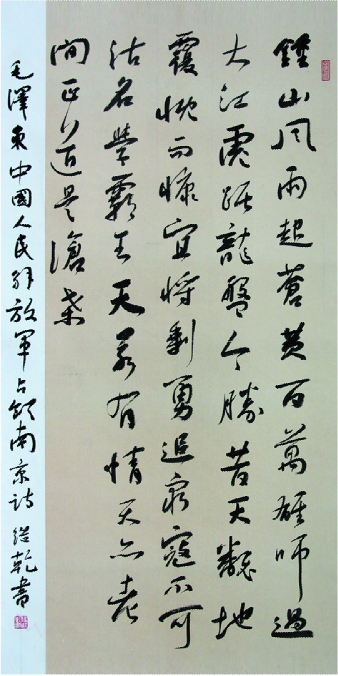 鍾山風雨起蒼黄百萬雄師過
大江虎踞龍盤今勝昔天翻地
覆慨而慷宜將剩勇追窮寇不可
沽名學霸王天若有情天亦老
間正道是滄桑
毛澤東中國人民解放軍占領南京詩 乾書